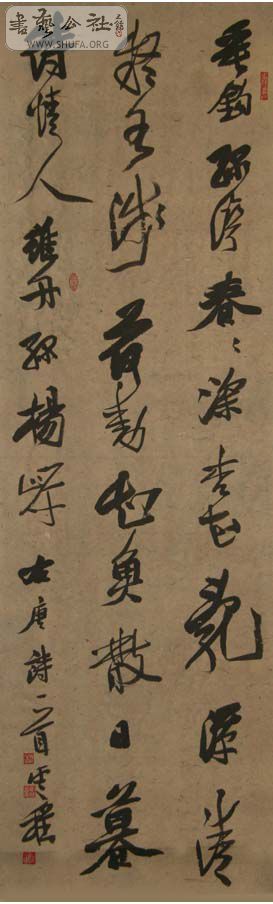 書藝公社
WWW.SHUFA.ORG
垂釣綠灣春〻深杏花亂潭清
疑水淺荷動知魚散日暮
待情人維舟綠楊岸右唐詩一首